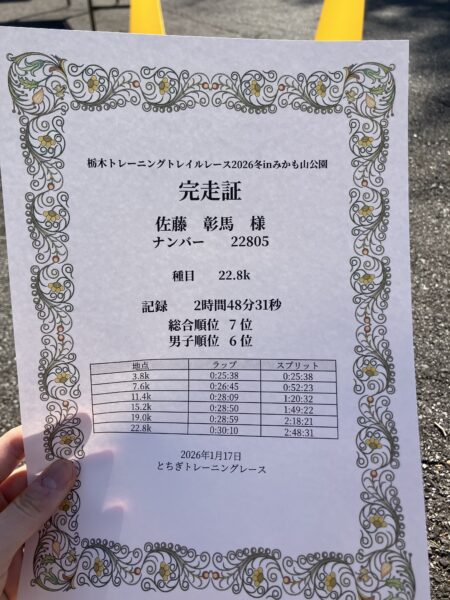 栃木トレーニングトレイルレース2026冬inみかも山公園
完走証
佐藤 彰馬 様
ナンバー 22805
種目 22.8k
記録 2時間48分31秒
総合順位 7 位
男子順位 6 位
地点 ラップ スプリット
3.8k 0:25:38 0:25:38
7.6k 0:26:45 0:52:23
11.4k 0:28:09 1:20:32
15.2k 0:28:50 1:49:22
19.0k 0:28:59 2:18:21
22.8k 0:30:10 2:48:31
2026年1月17日
とちぎトレーニングレース